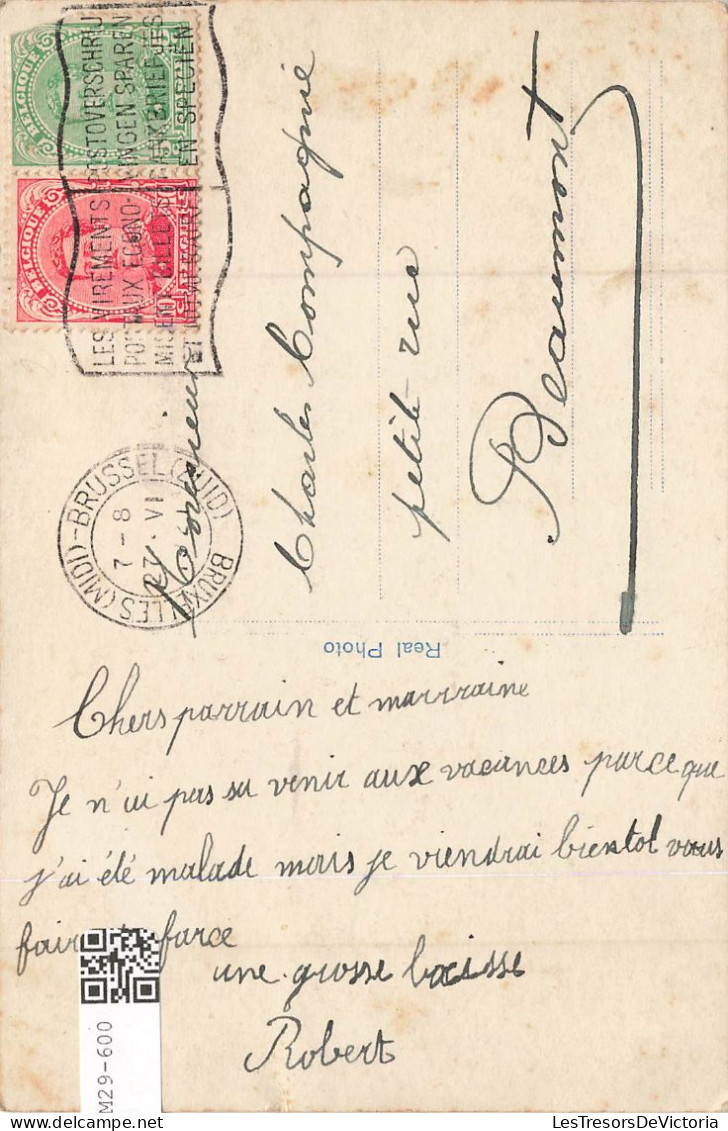 BELGIQUE
BELGIQUE
LES VIREMENTS POSTOVERSCHRIJ
POSTAUX ECONO- VINGEN SPAREN
EN SPECIËN
BRUXELLES (MIDI) - BRUSSEL (ZUID)
7 - 8
VI
Monsieur
Charles Compagnie
petite rue
Beaumont
Real Photo
Chers parrain et marraine
Je n'ai pas su venir aux vacances parce que
j'ai été malade mais je viendrai bientot vous
farce
une grosse baisse
Robert
M29-600
LesTresorsDeVictoria